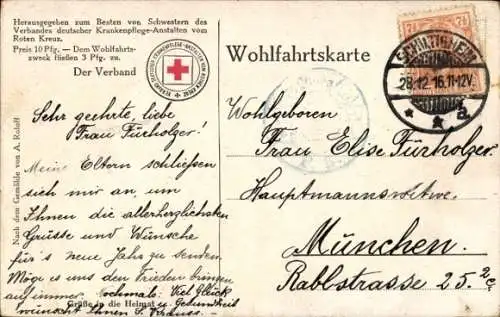 Herausgegeben zum Besten von Schwestern des
Verbandes deutscher Krankenpflege-Anstalten vom
Roten Kreuz.
Preis 10 Pfg. — Dem Wohlfahrts-
zweck fließen 3 Pfg. zu.
Der Verband
Nach dem Gemälde von A. Roloff
Sehr geehrte, liebe
Frau Fürholzer!
Meine Eltern schließen
sich mir an, um
Ihnen die allerherzlichsten
Grüsse und Wünsche
für's neue Jahr zu senden.
Möge es uns den Frieden bringen
auf immer. Nochmals: Viel Glück
Grüße in die Heimat u. Gesundheit
wünscht Ihnen S. Krauss.
Wohlfahrtskarte
7½ 7½
SCHILTIGHEIM
28.12.16.11-12V.
* * a.
Wohlgeboren
Frau Elise Fürholzer
Hauptmannswitwe.
München.
Rablstrasse 25.